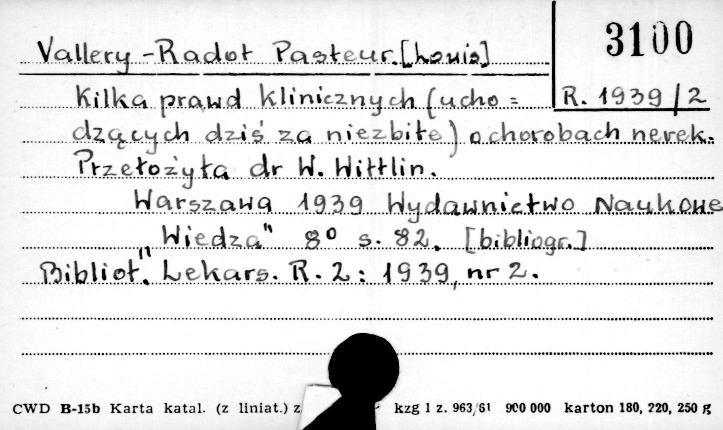 Vallery-Radot Pasteur.[Louis]
3100
R. 1939/2
Kilka prawd klinicznych (ucho=
dzących dziś za niezbite) o chorobach nerek.
Przełożyła dr W. Wittlin.
Warszawa 1939 Wydawnictwo Naukowe
"Wiedza" 8° s. 82. [bibliogr.]
Bibliot. Lekars. R. 2: 1939, nr 2.
CWD B-15b Karta katal. (z liniat.) z kzg 1 z. 963/61 900 000 karton 180, 220, 250 g